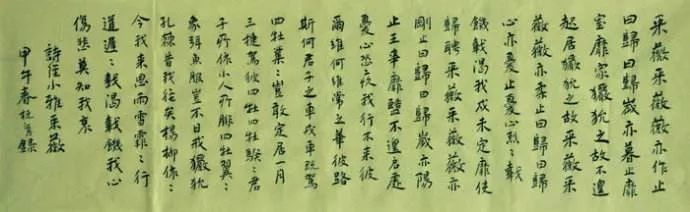 采薇采薇薇亦作止
曰歸曰歸歲亦暮止靡
室靡家玁狁之故不遑
起居玁狁之故采薇采
薇薇亦柔止曰歸曰歸
心亦憂止憂心烈々載
飢載渴我戍未定靡使
歸聘采薇采薇薇亦
剛止曰歸曰歸歲亦陽
止王事靡盬不遑啟處
憂心孔疚我行不來彼
爾維何維常之華彼路
斯何君子之車戎車既駕
四牡業々豈敢定居一月
三捷駕彼四牡四牡騤々君
子所依小人所腓四牡翼々
象弭魚服豈不日戒玁狁
孔棘昔我往矣楊柳依々
今我來思雨雪霏々行
道遲々載渴載飢我心
傷悲莫知我哀
詩經小雅采薇
甲午春錄